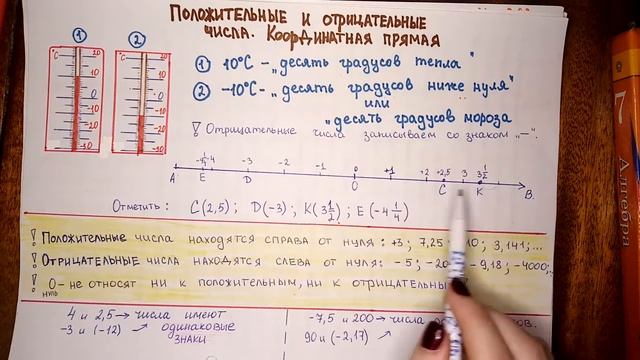 Положительные и отрицательные
числа. Координатная прямая
① ②
°C 20 °C 20
10 10
0 0
-10 -10
-20 -20
① 10°C – „десять градусов тепла"
② -10°C – „десять градусов ниже нуля"
или
„десять градусов мороза
! Отрицательные числа записываем со знаком „–".
-4 1/4 -4 -3 -2 -1 0 +1 +2 +2,5 3 3 1/2
A E D O C K B
Отметить: C(2,5); D(-3); K(3 1/2); E(-4 1/4)
! Положительные числа находятся справа от нуля: +3; 7,25; 10; 3,141;...
! Отрицательные числа находятся слева от нуля: -5; -20; -9,18; -4000;
! 0 – не относят ни к положительным, ни к отрицательны
нуль
4 и 2,5 → числа имеют
-3 и (-12) → одинаковые
знаки
-7,5 и 200 → числа ов.
90 и (-2,17)
7